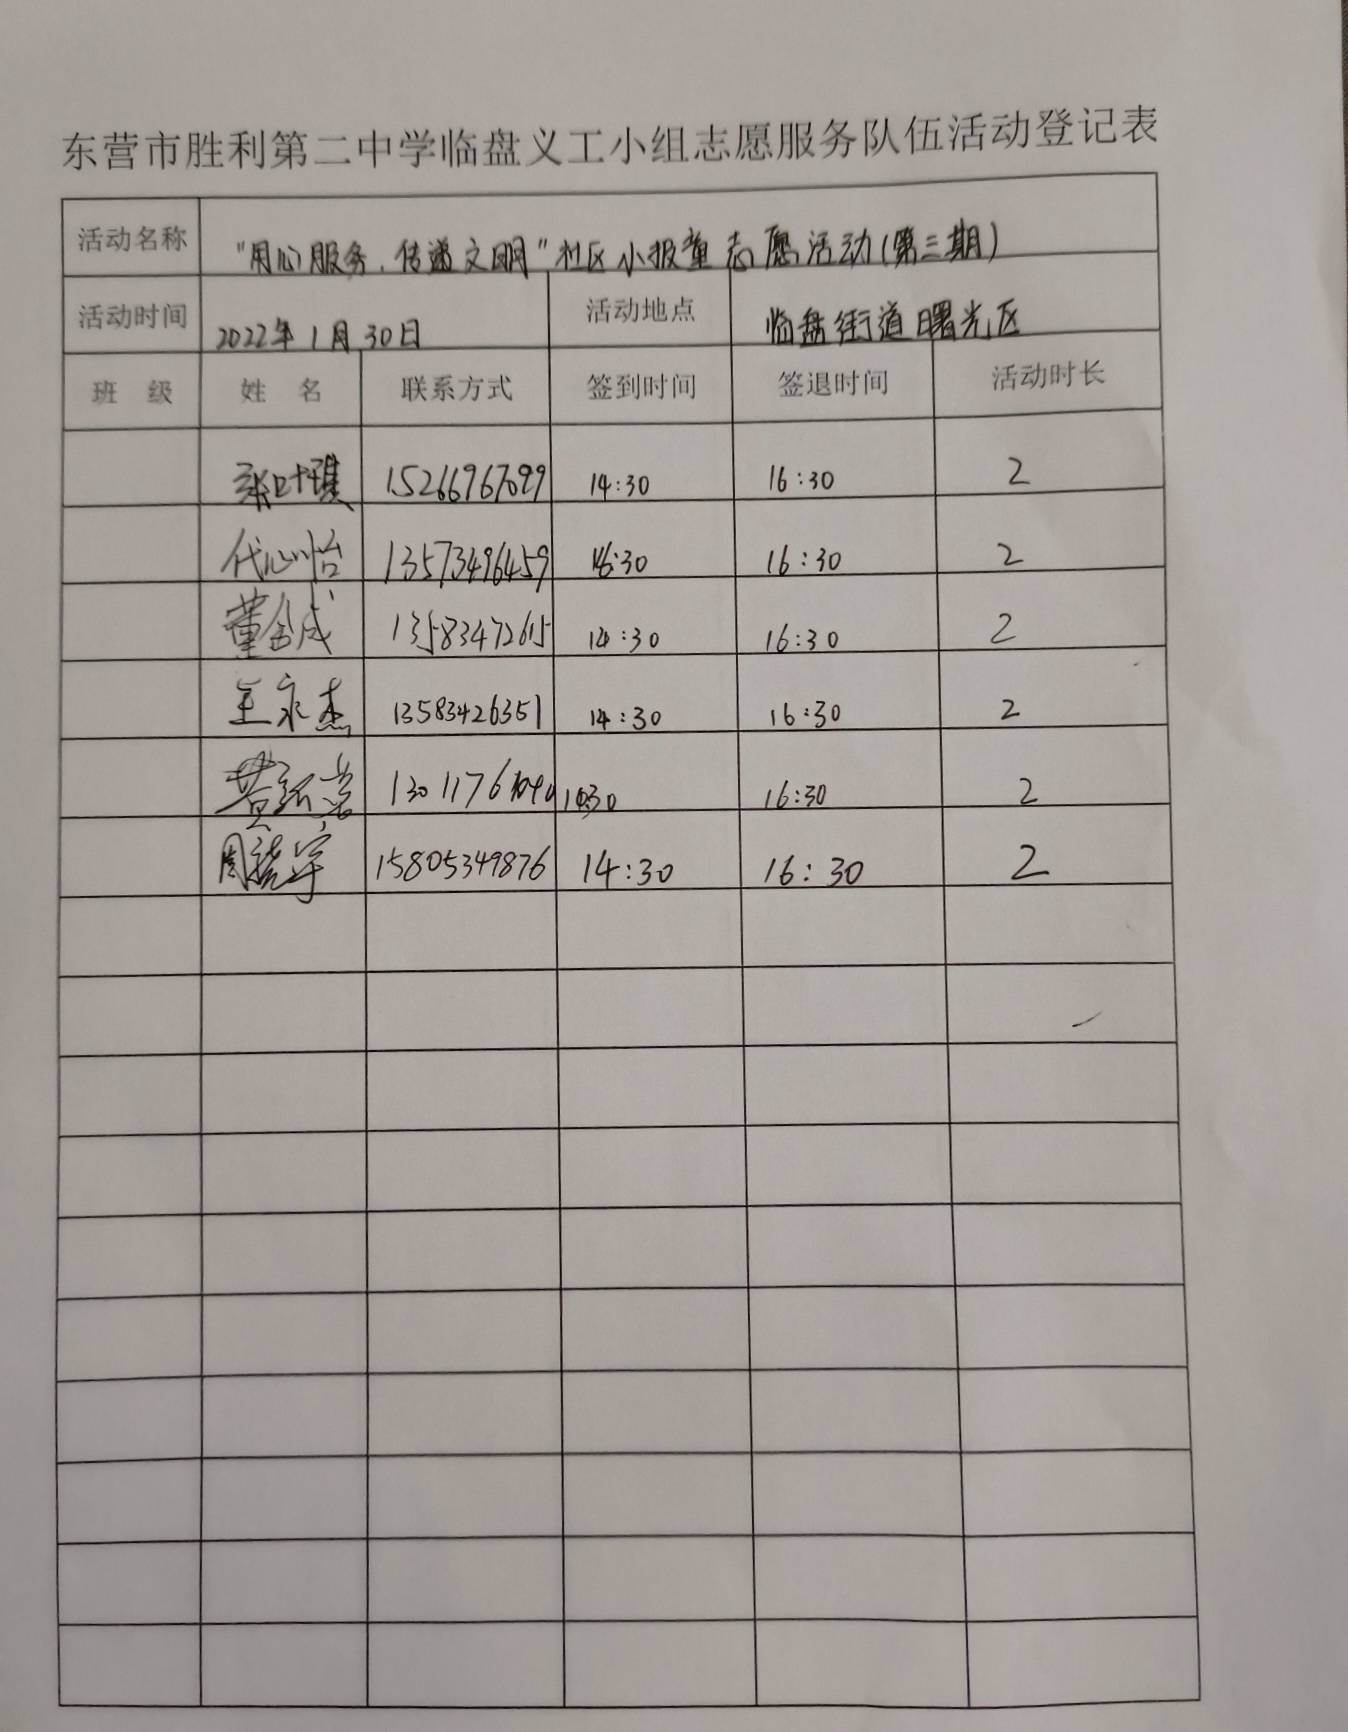 东营市胜利第二中学临盘义工小组志愿服务队伍活动登记表
活动名称 "用心服务，传递文明"社区小报童志愿活动(第三期)
活动时间 2022年1月30日 活动地点 临盘街道曙光区
班 级 姓 名 联系方式 签到时间 签退时间 活动时长
14:30 16:30 2
代心怡 13573496459 16:30 2
董金成 13583472615 14:30 16:30 2
王永杰 13583426351 14:30 16:30 2
黄 16:30 2
周 15805349876 14:30 16:30 2